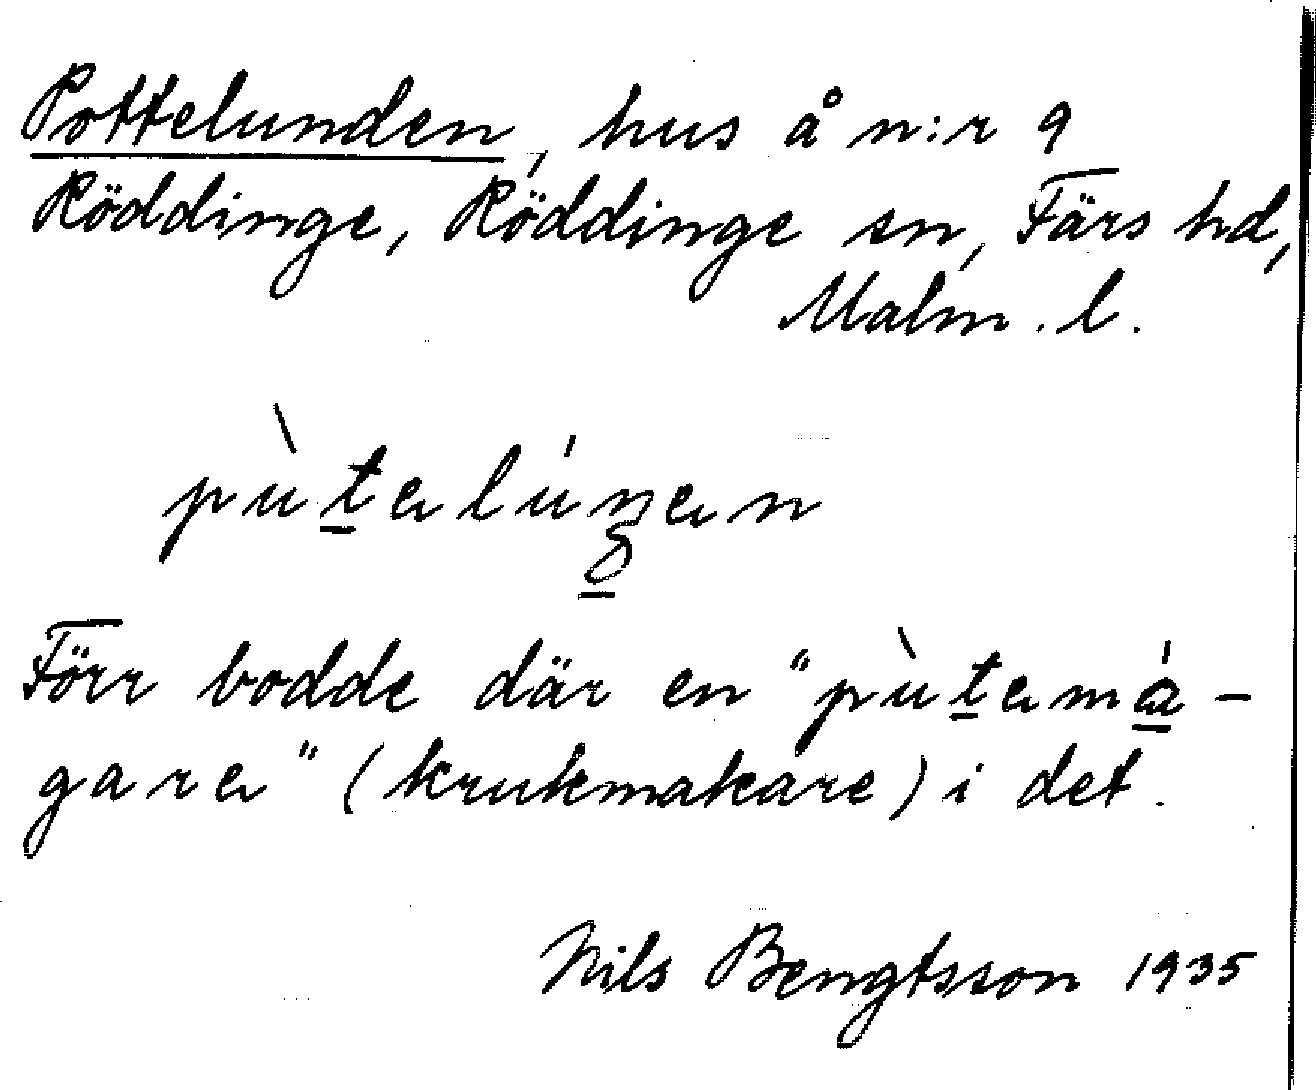 Pottelunden, hus å n:r 9
Röddinge, Röddinge sn, Färs hd,
Malm. l.
pùt̲alúnan
Förr bodde där en "pùt̲amá̲-
gara" (krukmakare) i det.
Nils Bengtsson 1935